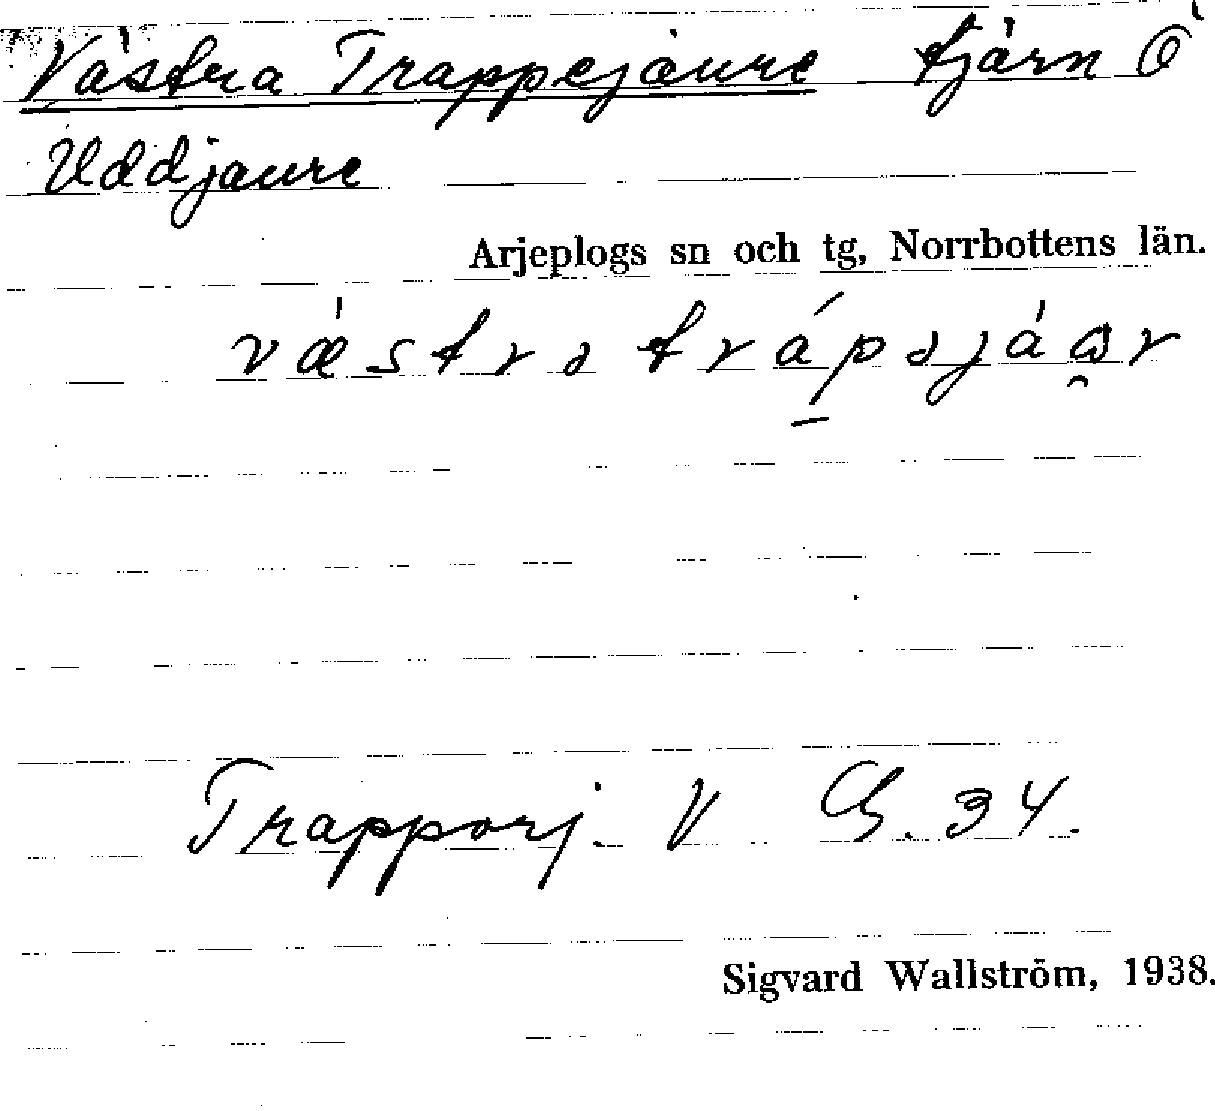 Västra Trappejaure tjärn Ö
Uddjaure
Arjeplogs sn och tg, Norrbottens län.
Trapporj. V G. 34.
Sigvard Wallström, 1938.